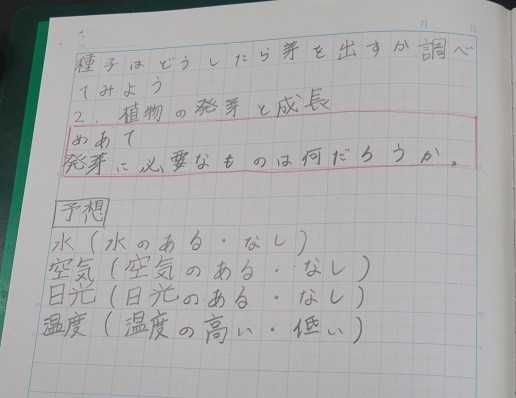 種子はどうしたら芽を出すか調べ
てみよう
2. 植物の発芽と成長
めあて
発芽に必要なものは何だろうか。
予想
水(水のある・なし)
空気(空気のある・なし)
日光(日光のある・なし)
温度(温度の高い・低い)